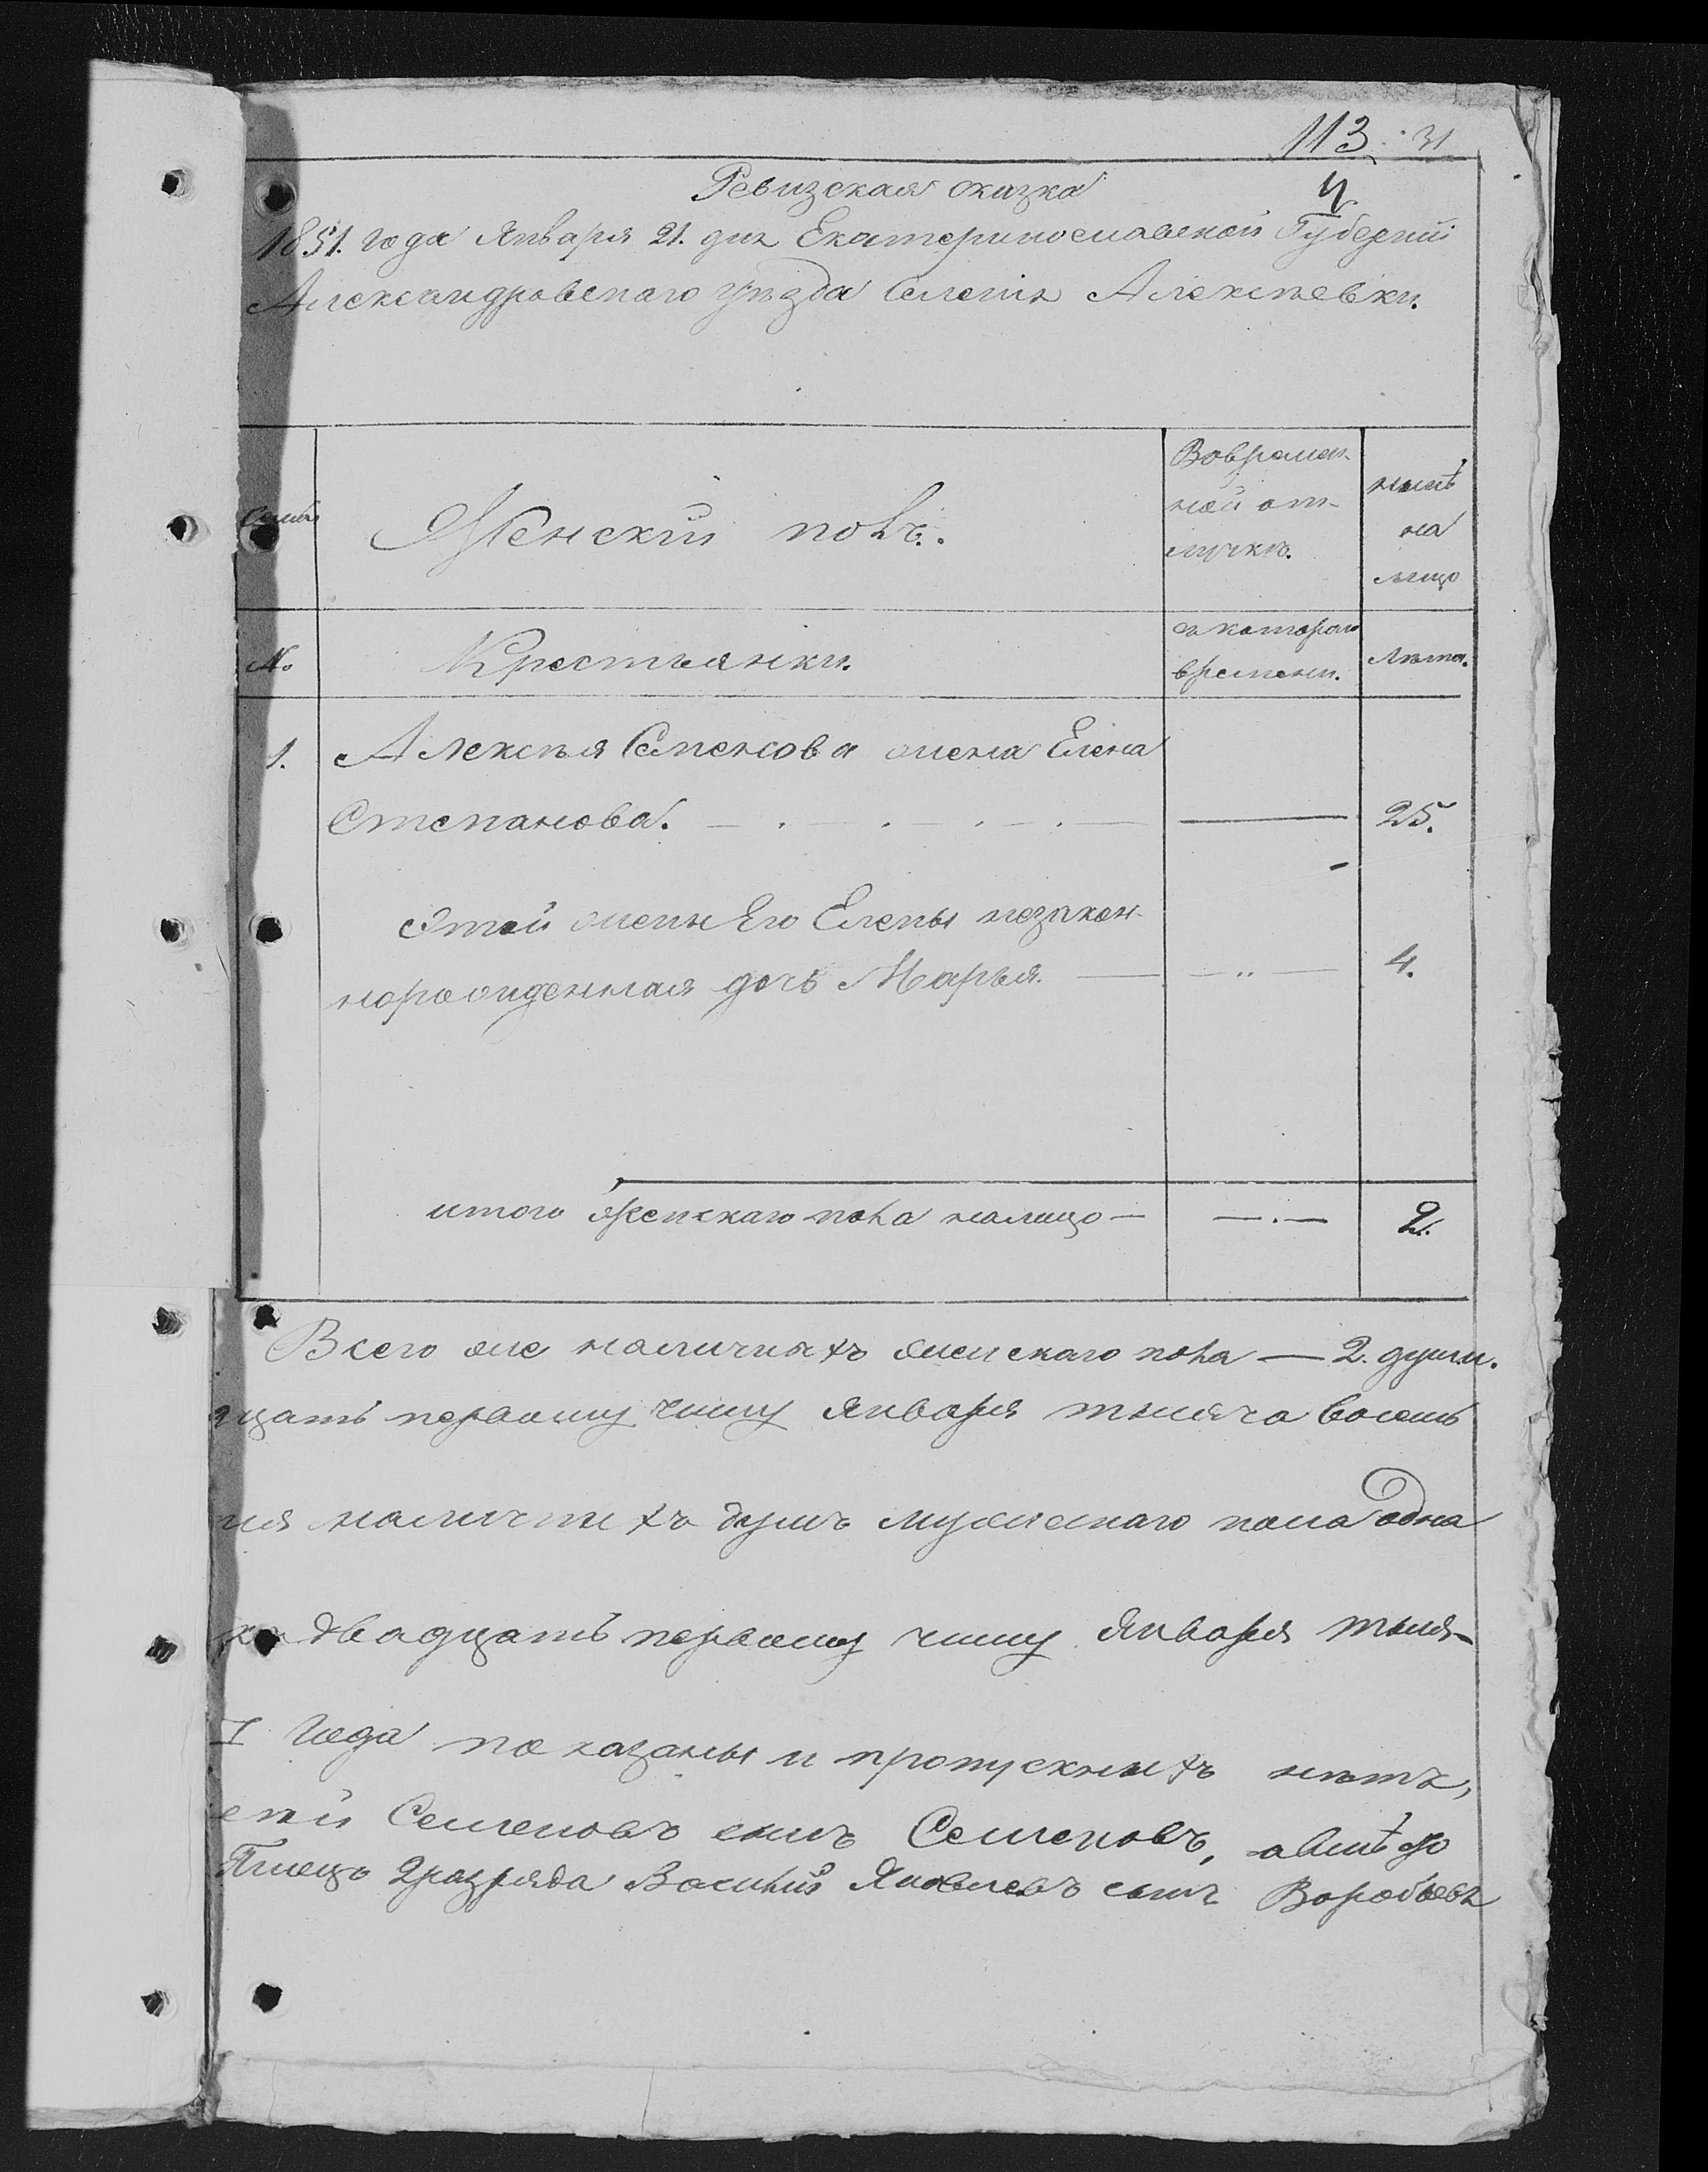 113. 31
Ревизская сказка
4
1851. года Января 21. дня Екатеринославской Губернии
Александровскаго уѣзда Селенія Алексѣевки.
Семьи
Женскій полъ.
Вовремен-
ной от-
лучкѣ.
нынѣ
на
лицо
№
Крестьянки.
съ котораго
времени.
Лѣта.
1. Алексѣя Семенова жена Елена
Степанова. 25.
Этой жены Его Елены незакон-
норожденная дочь Марья. 4.
итого женскаго пола налицо — 2.
Всего же наличныхъ женскаго пола — 2. души.
дцать первому числу Января тысяча восемь
наличныхъ душъ мужескаго пола одна
къ двадцать первому числу Января тыся-
I года показаны и прописныхъ нѣтъ,
ксѣй Семеновъ сынъ Семеновъ, а вмѣсто
Писецъ 2 разряда Василій Яковлевъ сынъ Воробьевъ